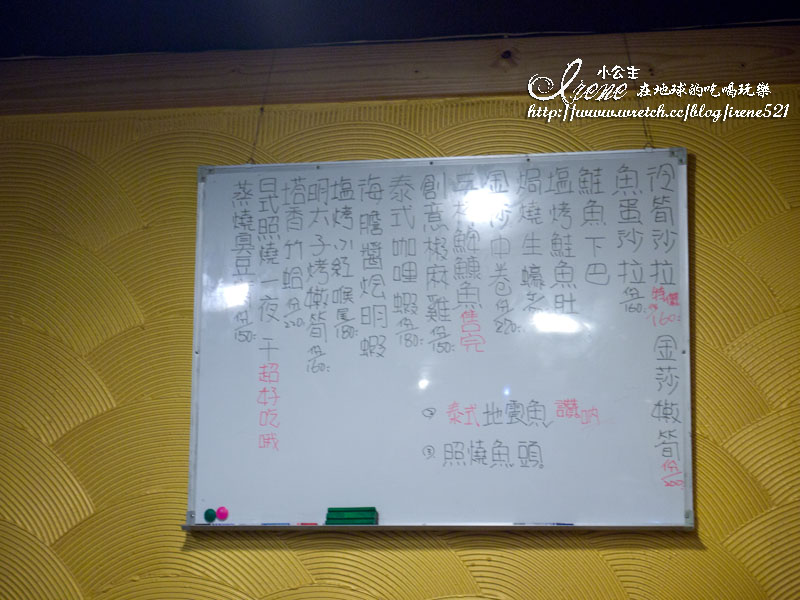 小公主
Irene 在地球的吃喝玩樂
http://www.wretch.cc/blog/irene521
冷筍沙拉 特價 160.
金莎嫩筍 份 200
魚蛋沙拉 份 160.
鮭魚下巴
塩烤鮭魚肚
焗燒生蠔
金莎中卷 份 270.
魚 售完
創意椒麻雞 份 150.
泰式咖哩蝦 份 180.
海膽醬焗明蝦
塩烤小紅喉 尾 180.
明太子烤嫩筍 份 160.
塔香竹蛤 份 200
日式照燒一夜干 超好吃哦
蒸燒臭豆 份 150.
② 泰式地震魚 讚吶
③ 照燒魚頭。